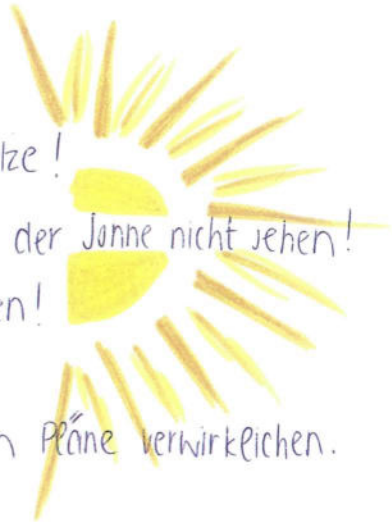 tze!
der Sonne nicht sehen!
en!
n Pläne verwirklichen.